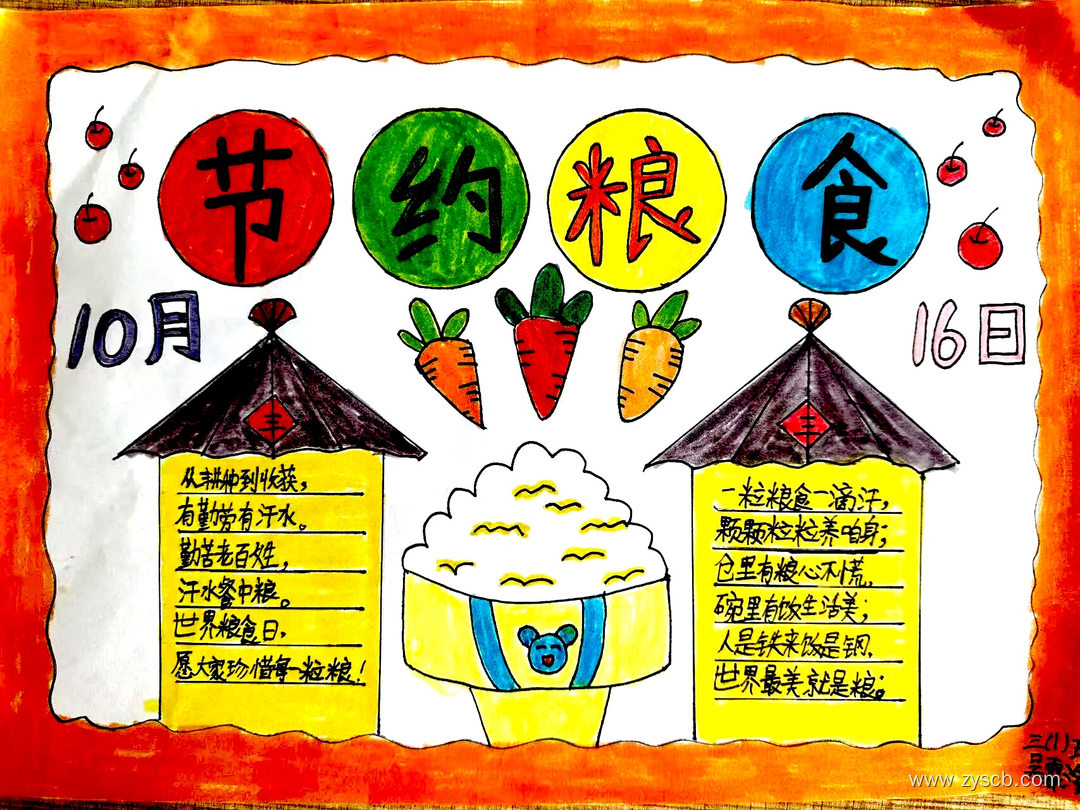 节约粮食
10月
16日
丰
丰
从耕种到收获，
有勤劳有汗水。
勤苦老百姓，
汗水餐中粮。
世界粮食日，
愿大家珍惜每一粒粮！
一粒粮食一滴汗，
颗颗粒粒养咱身；
仓里有粮心不慌，
碗里有饭生活美；
人是铁来饭是钢，
世界最美就是粮。
三(1)
www.zyscb.com